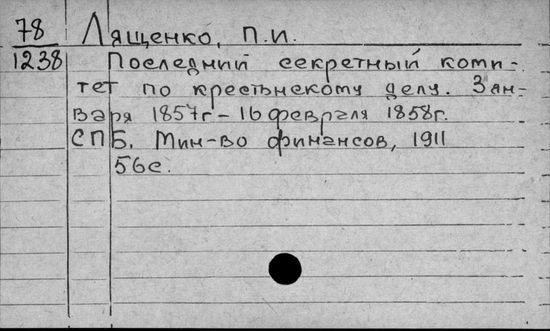 78 Лященко, П.И.
1238 Последний секретный коми-
тет по крестьнскому делу. 3 ян-
варя 1857г - 16 февраля 1858г.
СПБ. Мин-во финансов, 1911
56с.